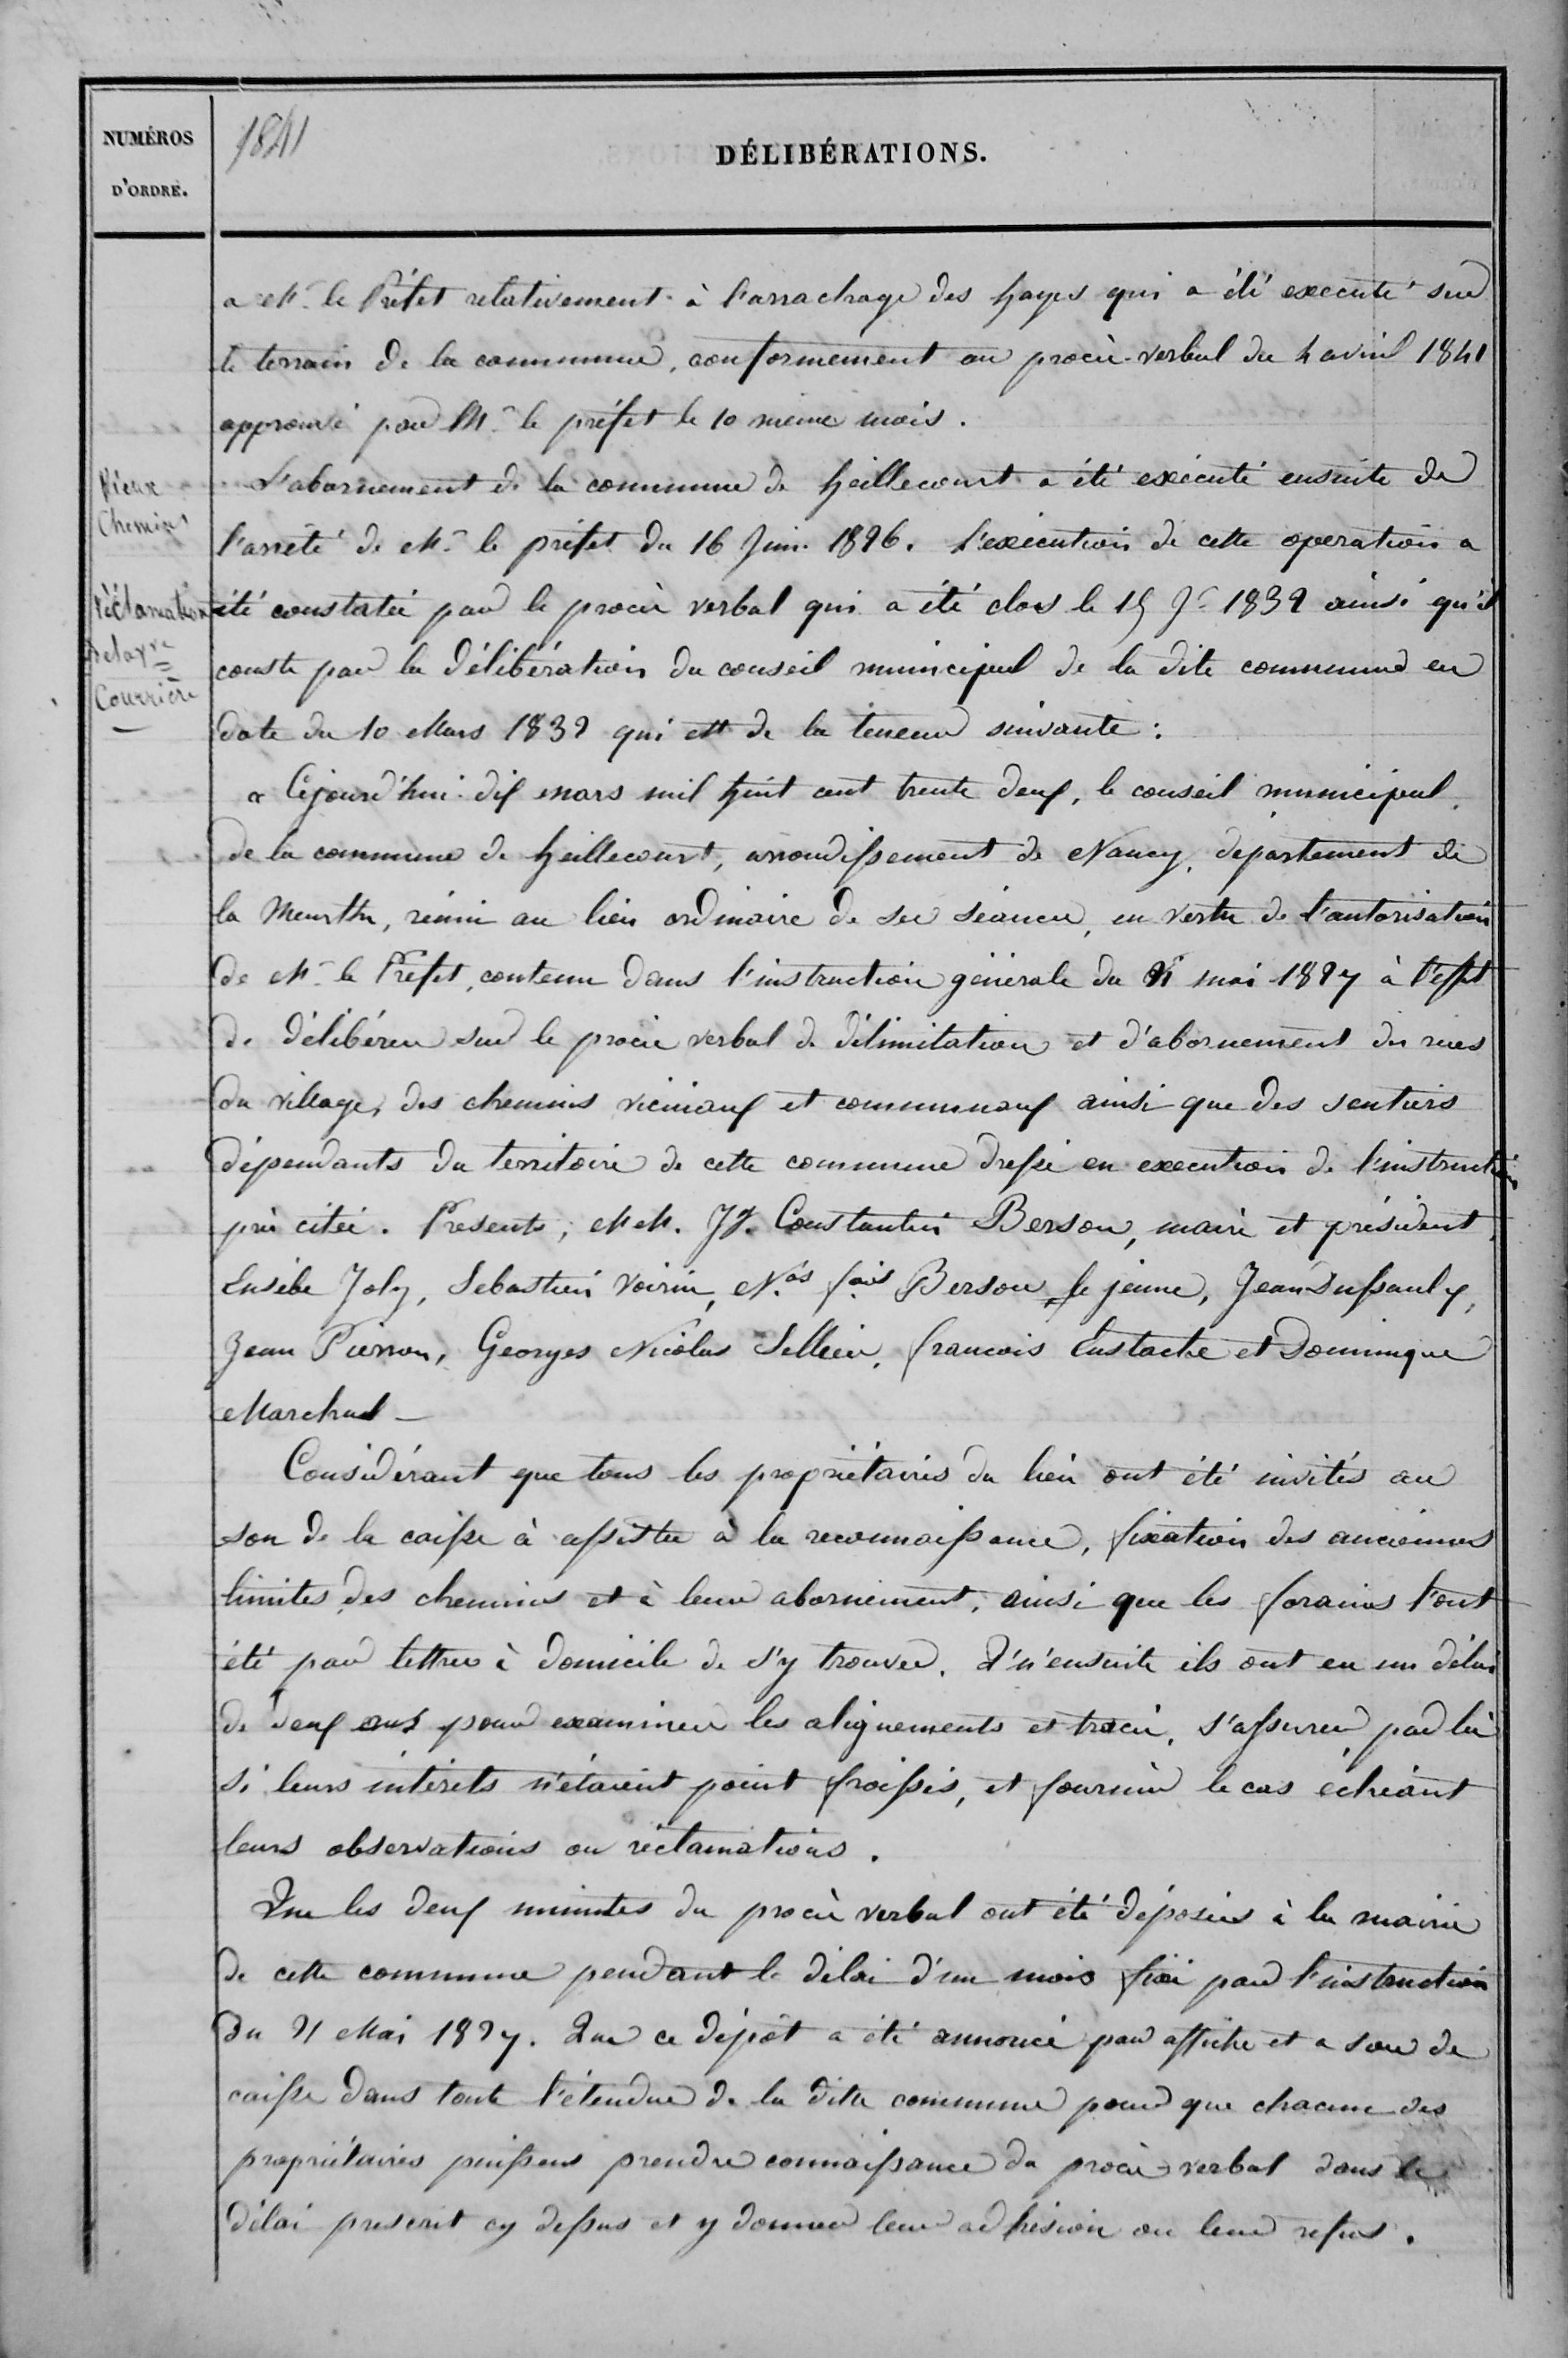 NUMÉROS
D'ORDRE.
1841
DÉLIBÉRATIONS.
a Mr. le Préfet relativement à l'arrachage des hayes qui a été executé sur
le terrain de la commune, conformement au procès-verbal du 4 avril 1841
approuvé par Mr. le préfet le 10 même mois.
Vieux
Chemins
Réclamation
Courrière
L'abornement de la commune de heillecourt a été exécuté ensuite de
l'arrêté de Mr. le préfet du 16 Juin 1826. L'exécution de cette operation a
été constatée par le procès verbal qui a été clos le 15 Jr 1832 ainsi qu'il
conste par la délibération du conseil municipal de la dite commune en
date du 10 Mars 1832 qui est de la teneur suivante :
« Cejourd'hui dix mars mil huit cent trente deux, le conseil municipal
de la commune de heillecourt, arrondissement de Nancy, département de
la Meurthe, réuni au lieu ordinaire de ses séances, en vertu de l'autorisation
de Mr. le Préfet, contenue dans l'instruction générale du 21 mai 1827 à l'effet
de délibérer sur le procès verbal de délimitation et d'abornement des rues
du village, des chemins vicinaux et communaux ainsi que des sentiers
dépendants du territoire de cette commune dressé en execution de l'instruction
pré citée. Presents, MM. Jh. Constantin Berson, maire et président,
Eusèbe Joly, Sebastien Voirin, Nas fois Berson le jeune, Jean Dussaulx,
Jean Pierron, Georges Nicolas Sellier, francois Eustache et Dominique
Marchal -
Considérant que tous les propriétaires du lieu ont été invités au
son de la caisse à assister à la reconnaissance, fixation des anciennes
limites des chemins et à leur abornement, ainsi que les forains l'ont
été par lettres à domicile de s'y trouver. Qu'ensuite ils ont eu un délai
de deux ans pour examiner les alignements et tracés, s'assurer par là
si leurs intérets n'étaient point froissés, et fournir le cas échéant
leurs observations ou réclamations.
Que les deux minutes du procès verbal ont été déposées à la mairie
de cette commune pendant le délai d'un mois fixé par l'instruction
du 21 Mai 1827. Que ce dépôt a été annoncé par affiche et a son de
caisse dans toute l'étendue de la dite commune pour que chacun des
propriétaires puissent prendre connaissance du procès-verbal dans le
délai prescrit cy dessus et y donner leur adhésion ou leur refus.